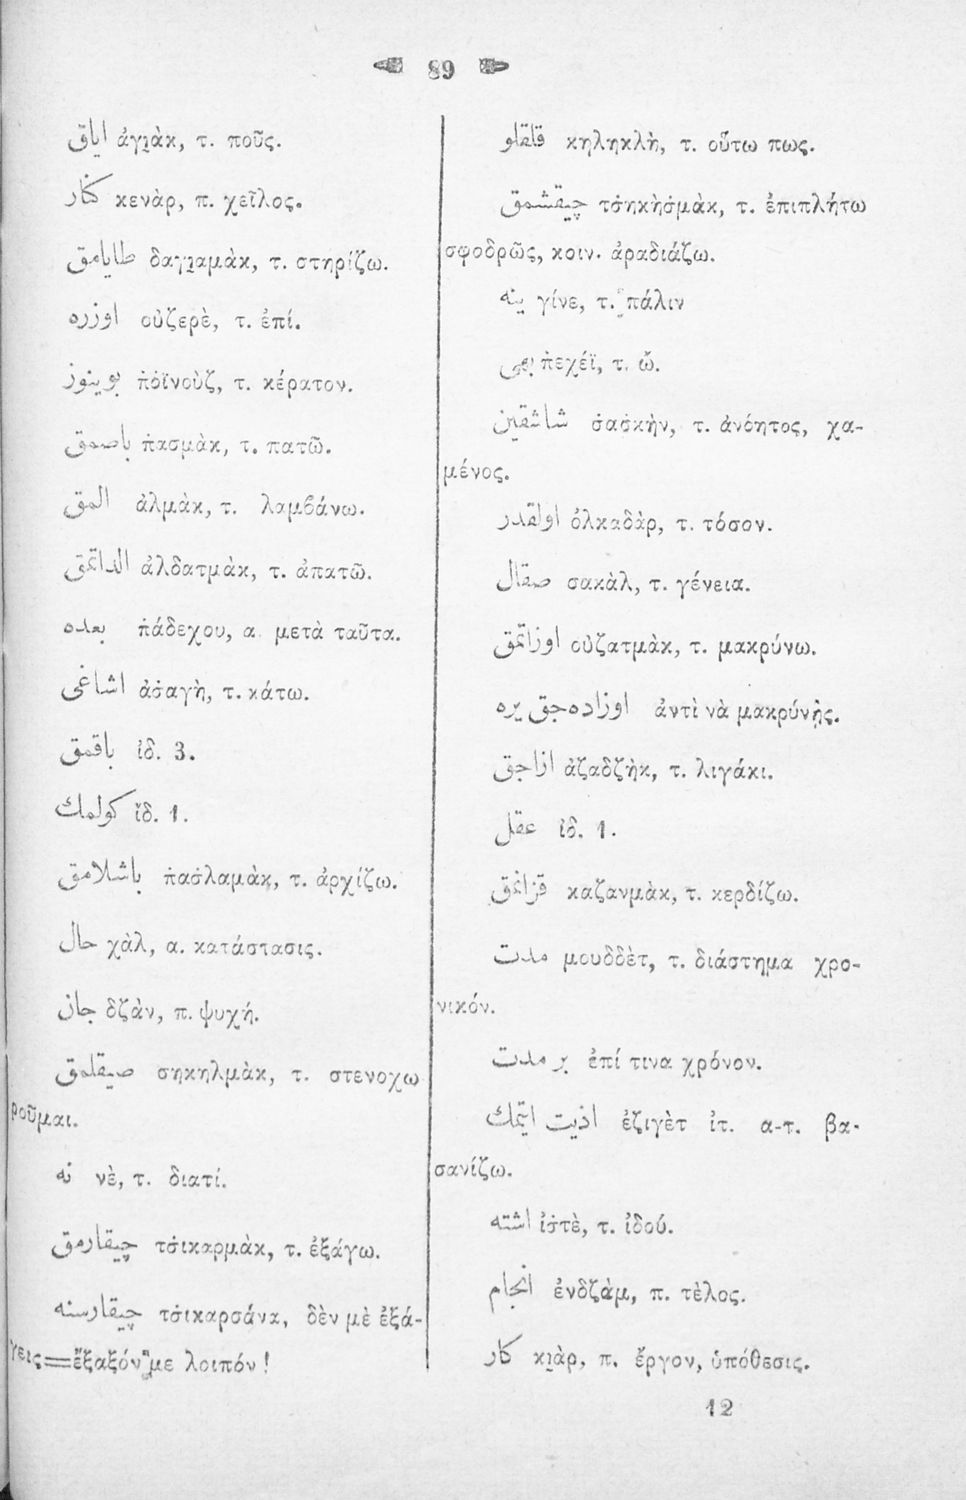 89
ایاق ἀγιὰκ, τ. ποῦς.
كنار κενὰρ, π. χεῖλος.
طایامق δαγιαμὰκ, τ. στηρίζω.
اوزره οὐζερὲ, τ. ἐπί.
بوینوز πὀϊνοὺζ, τ. κέρατον.
باصمق πασμὰκ, τ. πατῶ.
المق ἀλμὰκ, τ. λαμβάνω.
الداتمق ἀλδατμὰκ, τ. ἀπατῶ.
بعده πάδεχου, α. μετὰ ταῦτα.
اشاغی ἀσαγὴ, τ. κάτω.
باقمق ἰδ. 3.
كولمك ἴδ. 1.
باشلامق πασλαμὰκ, τ. ἀρχίζω.
حال χὰλ, α. κατάστασις.
جان δζὰν, π. ψυχή.
صیقلمق σηκηλμὰκ, τ. στενοχω
ροῦμαι.
نه νὲ, τ. διατί.
چیقارمق τσικαρμὰκ, τ. ἐξάγω.
چیقارسنه τσικαρσάνα, δὲν μὲ ἐξά-
γεις=ἔξαξόν με λοιπόν!
κηληκλὴ, τ. οὕτω πως.
چیقشمق τσηκὴσμὰκ, τ. ἐπιπλήτω
σφοδρῶς, κοιν. ἀραδιάζω.
ینه γίνε, τ. πάλιν
πεχέϊ, τ. ὤ.
شاشقین σασκὴν, τ. ἀνόητος, χα-
μένος.
اولقدر ὀλκαδὰρ, τ. τόσον.
صقال σακὰλ, τ. γένεια.
اوزاتمق οὐζατμὰκ, τ. μακρύνω.
اوزاده‌جق یره ἀντὶ νὰ μακρύνῃς.
ازاجق ἀζαδζὴκ, τ. λιγάκι.
عقل ἰδ. 1.
قزانمق καζανμὰκ, τ. κερδίζω.
مدت μουδδὲτ, τ. διάστημα χρο-
νικόν.
بر مدت ἐπί τινα χρόνον.
اذیت ایتمك ἐζιγὲτ ἰτ. α-τ. βα-
σανίζω.
اشته ἰστὲ, τ. ἰδού.
انجام ἐνδζὰμ, π. τὲλος.
كار κιὰρ, π. ἔργον, ὑπόθεσις.
12